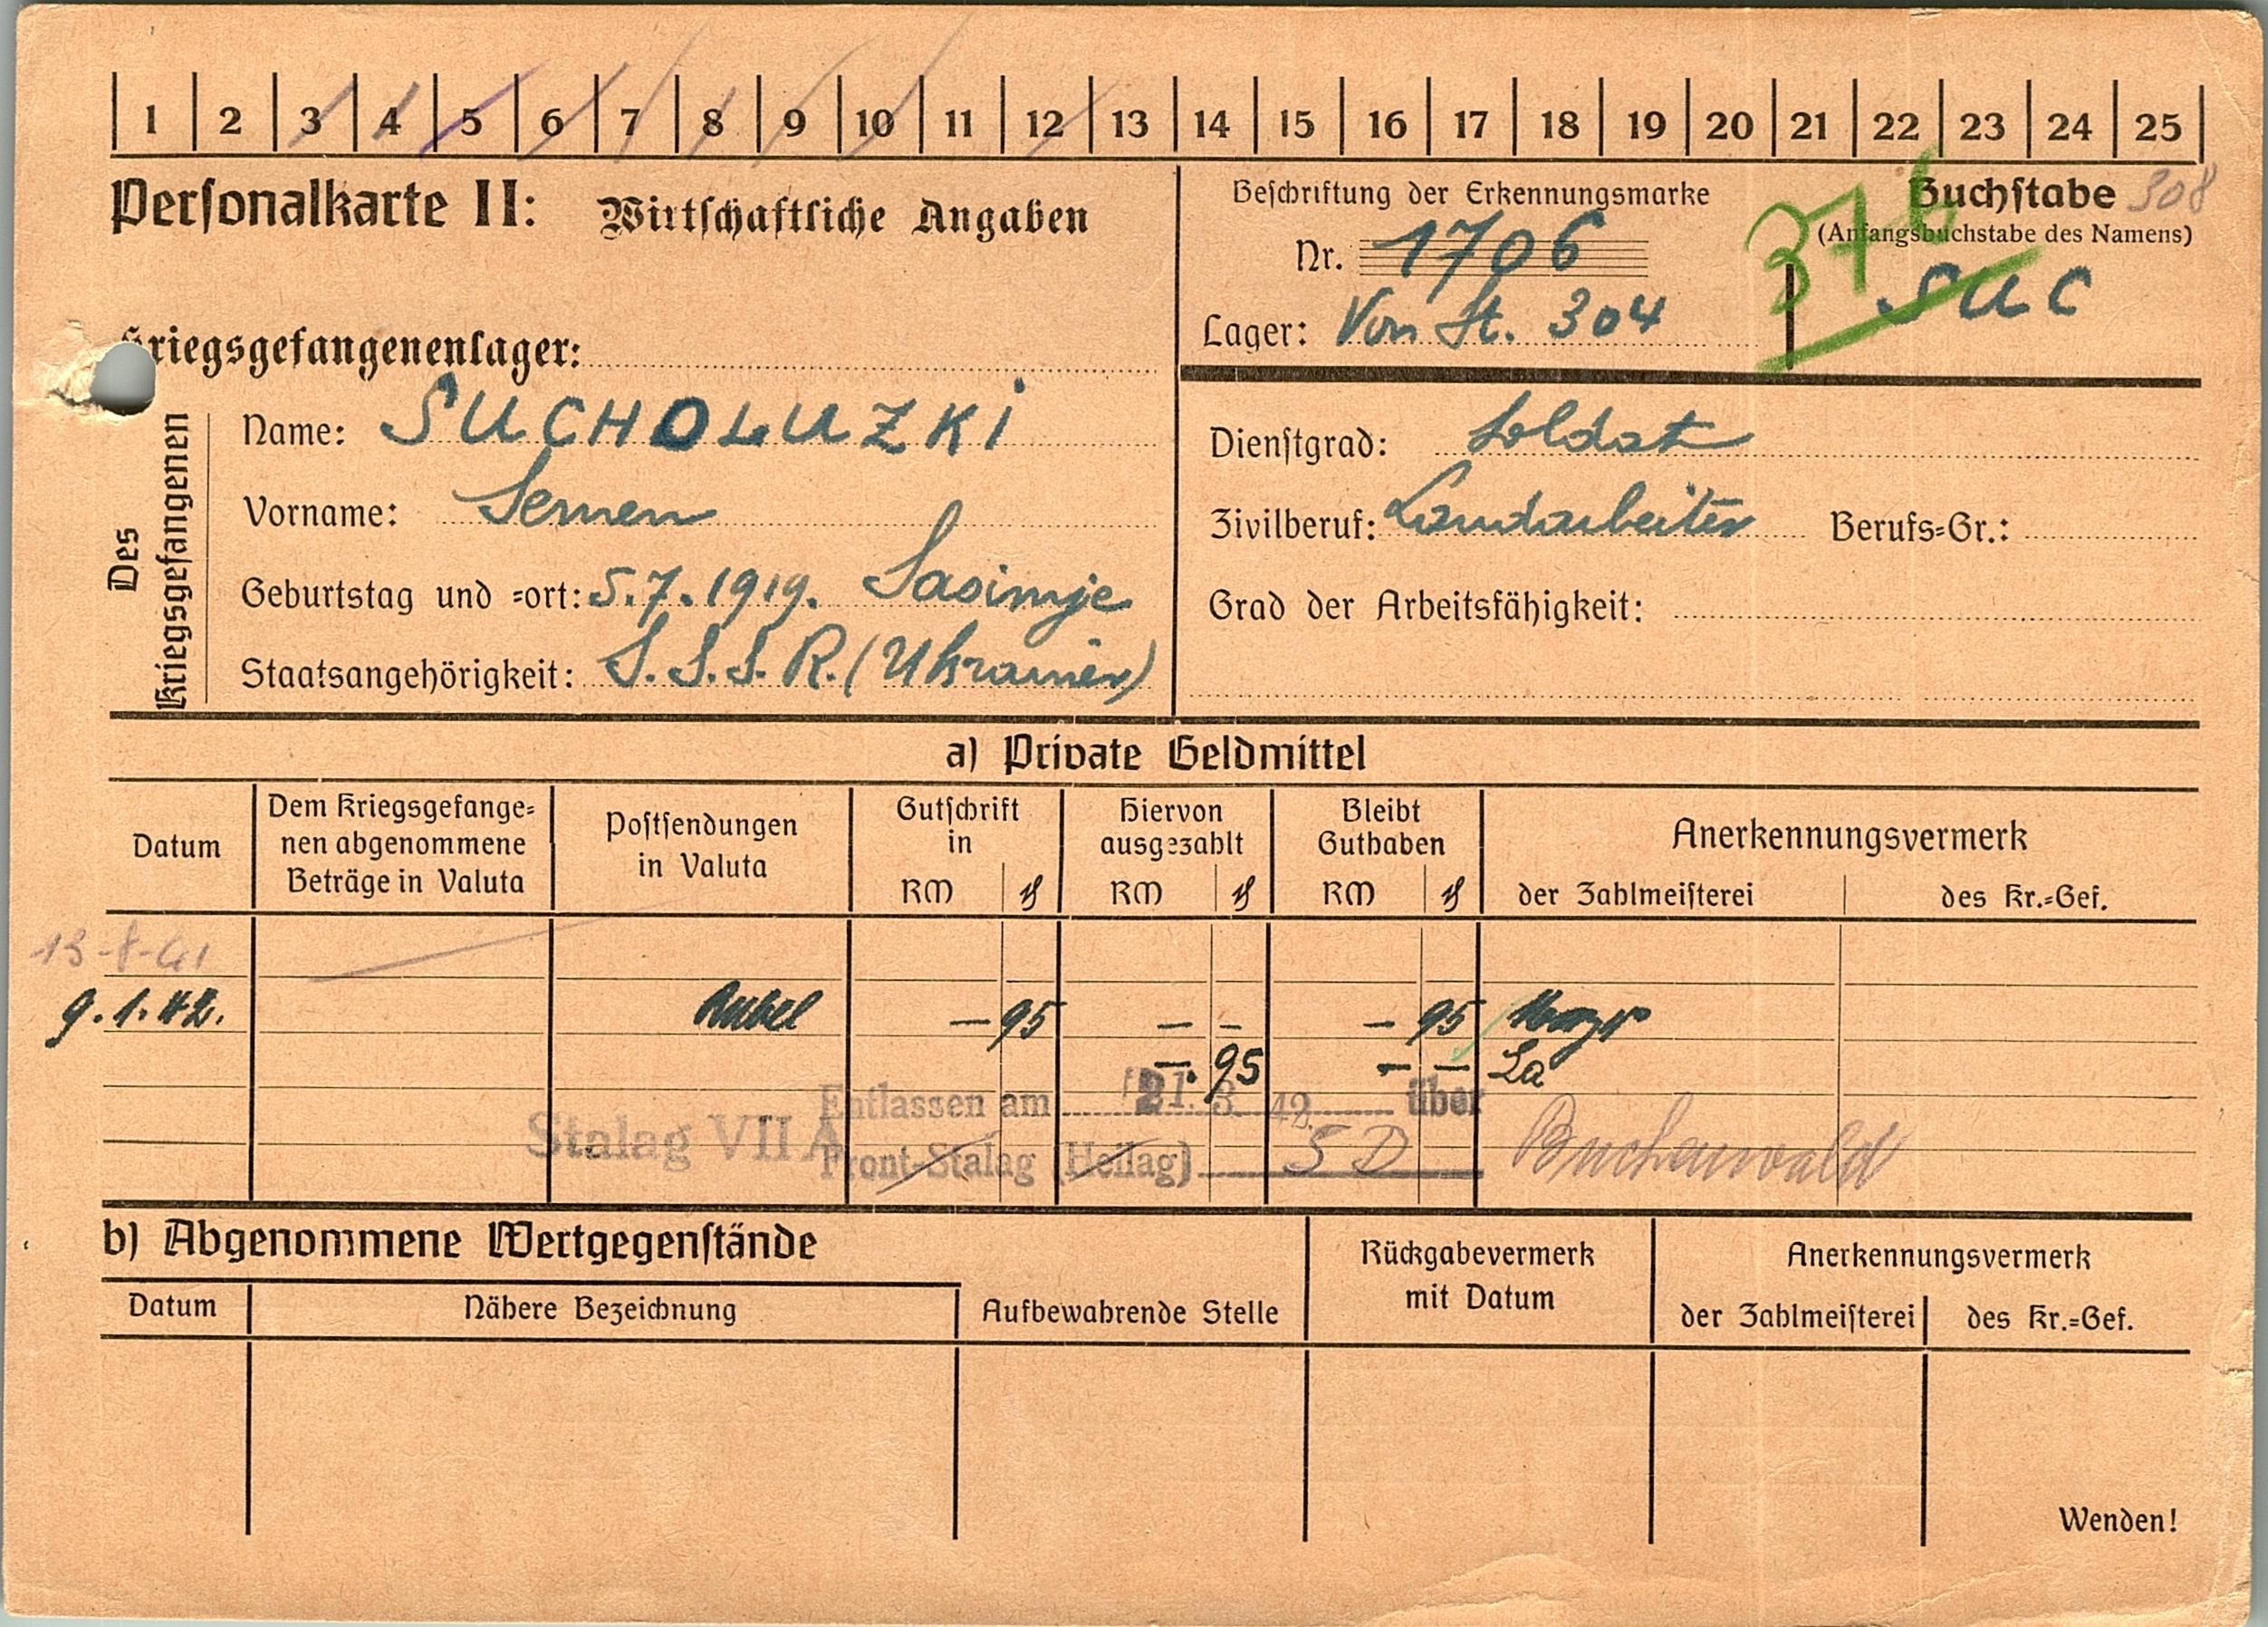 1 2 3 4 5 6 7 8 9 10 11 12 13 14 15 16 17 18 19 20 21 22 23 24 25
Personalkarte II: Wirtschaftliche Angaben
Beschriftung der Erkennungsmarke
Nr. 1706
Lager: Von St. 304
376
Buchstabe 308
(Anfangsbuchstabe des Namens)
SUC
Kriegsgefangenenlager:
Des Kriegsgefangenen
Name: SUCHOLUZKI
Vorname: Semen
Geburtstag und =ort: 5.7.1919. Saoimje
Staatsangehörigkeit: S.S.S.R. (Ukrainer)
Dienstgrad: Soldat
Zivilberuf: Landarbeiter Berufs=Gr.:
Grad der Arbeitsfähigkeit:
a) Private Geldmittel
Datum
Dem Kriegsgefange=
nen abgenommene
Beträge in Valuta
Postsendungen
in Valuta
Gutschrift
in
RM ₰
Hiervon
ausgezahlt
RM ₰
Bleibt
Guthaben
RM ₰
Anerkennungsvermerk
der Zahlmeisterei des Kr.=Gef.
13-8-41
9.1.42. Rubel — 95 — — — 95
—.95 — — La
Stalag VII A
Entlassen am 21. 3. 42. über
Front-Stalag (Heilag) SD Buchenwald
b) Abgenommene Wertgegenstände
Datum Nähere Bezeichnung Aufbewahrende Stelle
Rückgabevermerk
mit Datum
Anerkennungsvermerk
der Zahlmeisterei des Kr.=Gef.
Wenden!